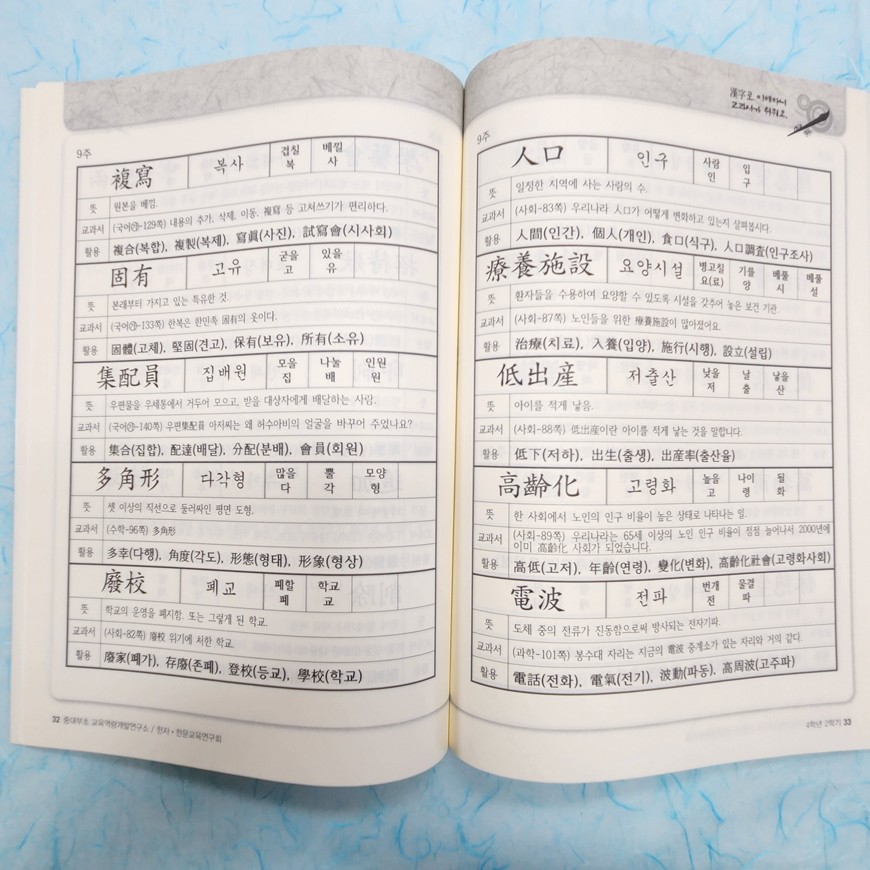 9주
複寫 복사 겹칠 복 베낄 사
뜻 원본을 베낌.
교과서 (국어㉮-129쪽) 내용의 추가, 삭제, 이동, 複寫 등 고쳐쓰기가 편리하다.
활용 複合(복합), 複製(복제), 寫眞(사진), 試寫會(시사회)
固有 고유 굳을 고 있을 유
뜻 본래부터 가지고 있는 특유한 것.
교과서 (국어㉮-133쪽) 한복은 한민족 固有의 옷이다.
활용 固體(고체), 堅固(견고), 保有(보유), 所有(소유)
集配員 집배원 모을 집 나눌 배 인원 원
뜻 우편물을 우체통에서 거두어 모으고, 받을 대상자에게 배달하는 사람.
교과서 (국어㉮-140쪽) 우편集配員 아저씨는 왜 허수아비의 얼굴을 바꾸어 주었나요?
활용 集合(집합), 配達(배달), 分配(분배), 會員(회원)
多角形 다각형 많을 다 뿔 각 모양 형
뜻 셋 이상의 직선으로 둘러싸인 평면 도형.
교과서 (수학-96쪽) 多角形
활용 多幸(다행), 角度(각도), 形態(형태), 形象(형상)
廢校 폐교 폐할 폐 학교 교
뜻 학교의 운영을 폐지함. 또는 그렇게 된 학교.
교과서 (사회-82쪽) 廢校 위기에 처한 학교.
활용 廢家(폐가), 存廢(존폐), 登校(등교), 學校(학교)
32 중대부초 교육역량개발연구소 / 한자·한문교육연구회
漢字로 이해하니
교과서가 쉬워요
9주
人口 인구 사람 인 입 구
뜻 일정한 지역에 사는 사람의 수.
교과서 (사회-83쪽) 우리나라 人口가 어떻게 변화하고 있는지 살펴봅시다.
활용 人間(인간), 個人(개인), 食口(식구), 人口調査(인구조사)
療養施設 요양시설 병고칠 요(료) 기를 양 베풀 시 베풀 설
뜻 환자들을 수용하여 요양할 수 있도록 시설을 갖추어 놓은 보건 기관.
교과서 (사회-87쪽) 노인들을 위한 療養施設이 많아졌어요.
활용 治療(치료), 入養(입양), 施行(시행), 設立(설립)
低出産 저출산 낮을 저 날 출 낳을 산
뜻 아이를 적게 낳음.
교과서 (사회-88쪽) 低出産이란 아이를 적게 낳는 것을 말합니다.
활용 低下(저하), 出生(출생), 出産率(출산율)
高齡化 고령화 높을 고 나이 령 될 화
뜻 한 사회에서 노인의 인구 비율이 높은 상태로 나타나는 일.
교과서 (사회-89쪽) 우리나라는 65세 이상의 노인 인구 비율이 점점 늘어나서 2000년에
이미 高齡化 사회가 되었습니다.
활용 高低(고저), 年齡(연령), 變化(변화), 高齡化社會(고령화사회)
電波 전파 번개 전 물결 파
뜻 도체 중의 전류가 진동함으로써 방사되는 전자기파.
교과서 (과학-101쪽) 봉수대 자리는 지금의 電波 중계소가 있는 자리와 거의 같다.
활용 電話(전화), 電氣(전기), 波動(파동), 高周波(고주파)
4학년 2학기 33